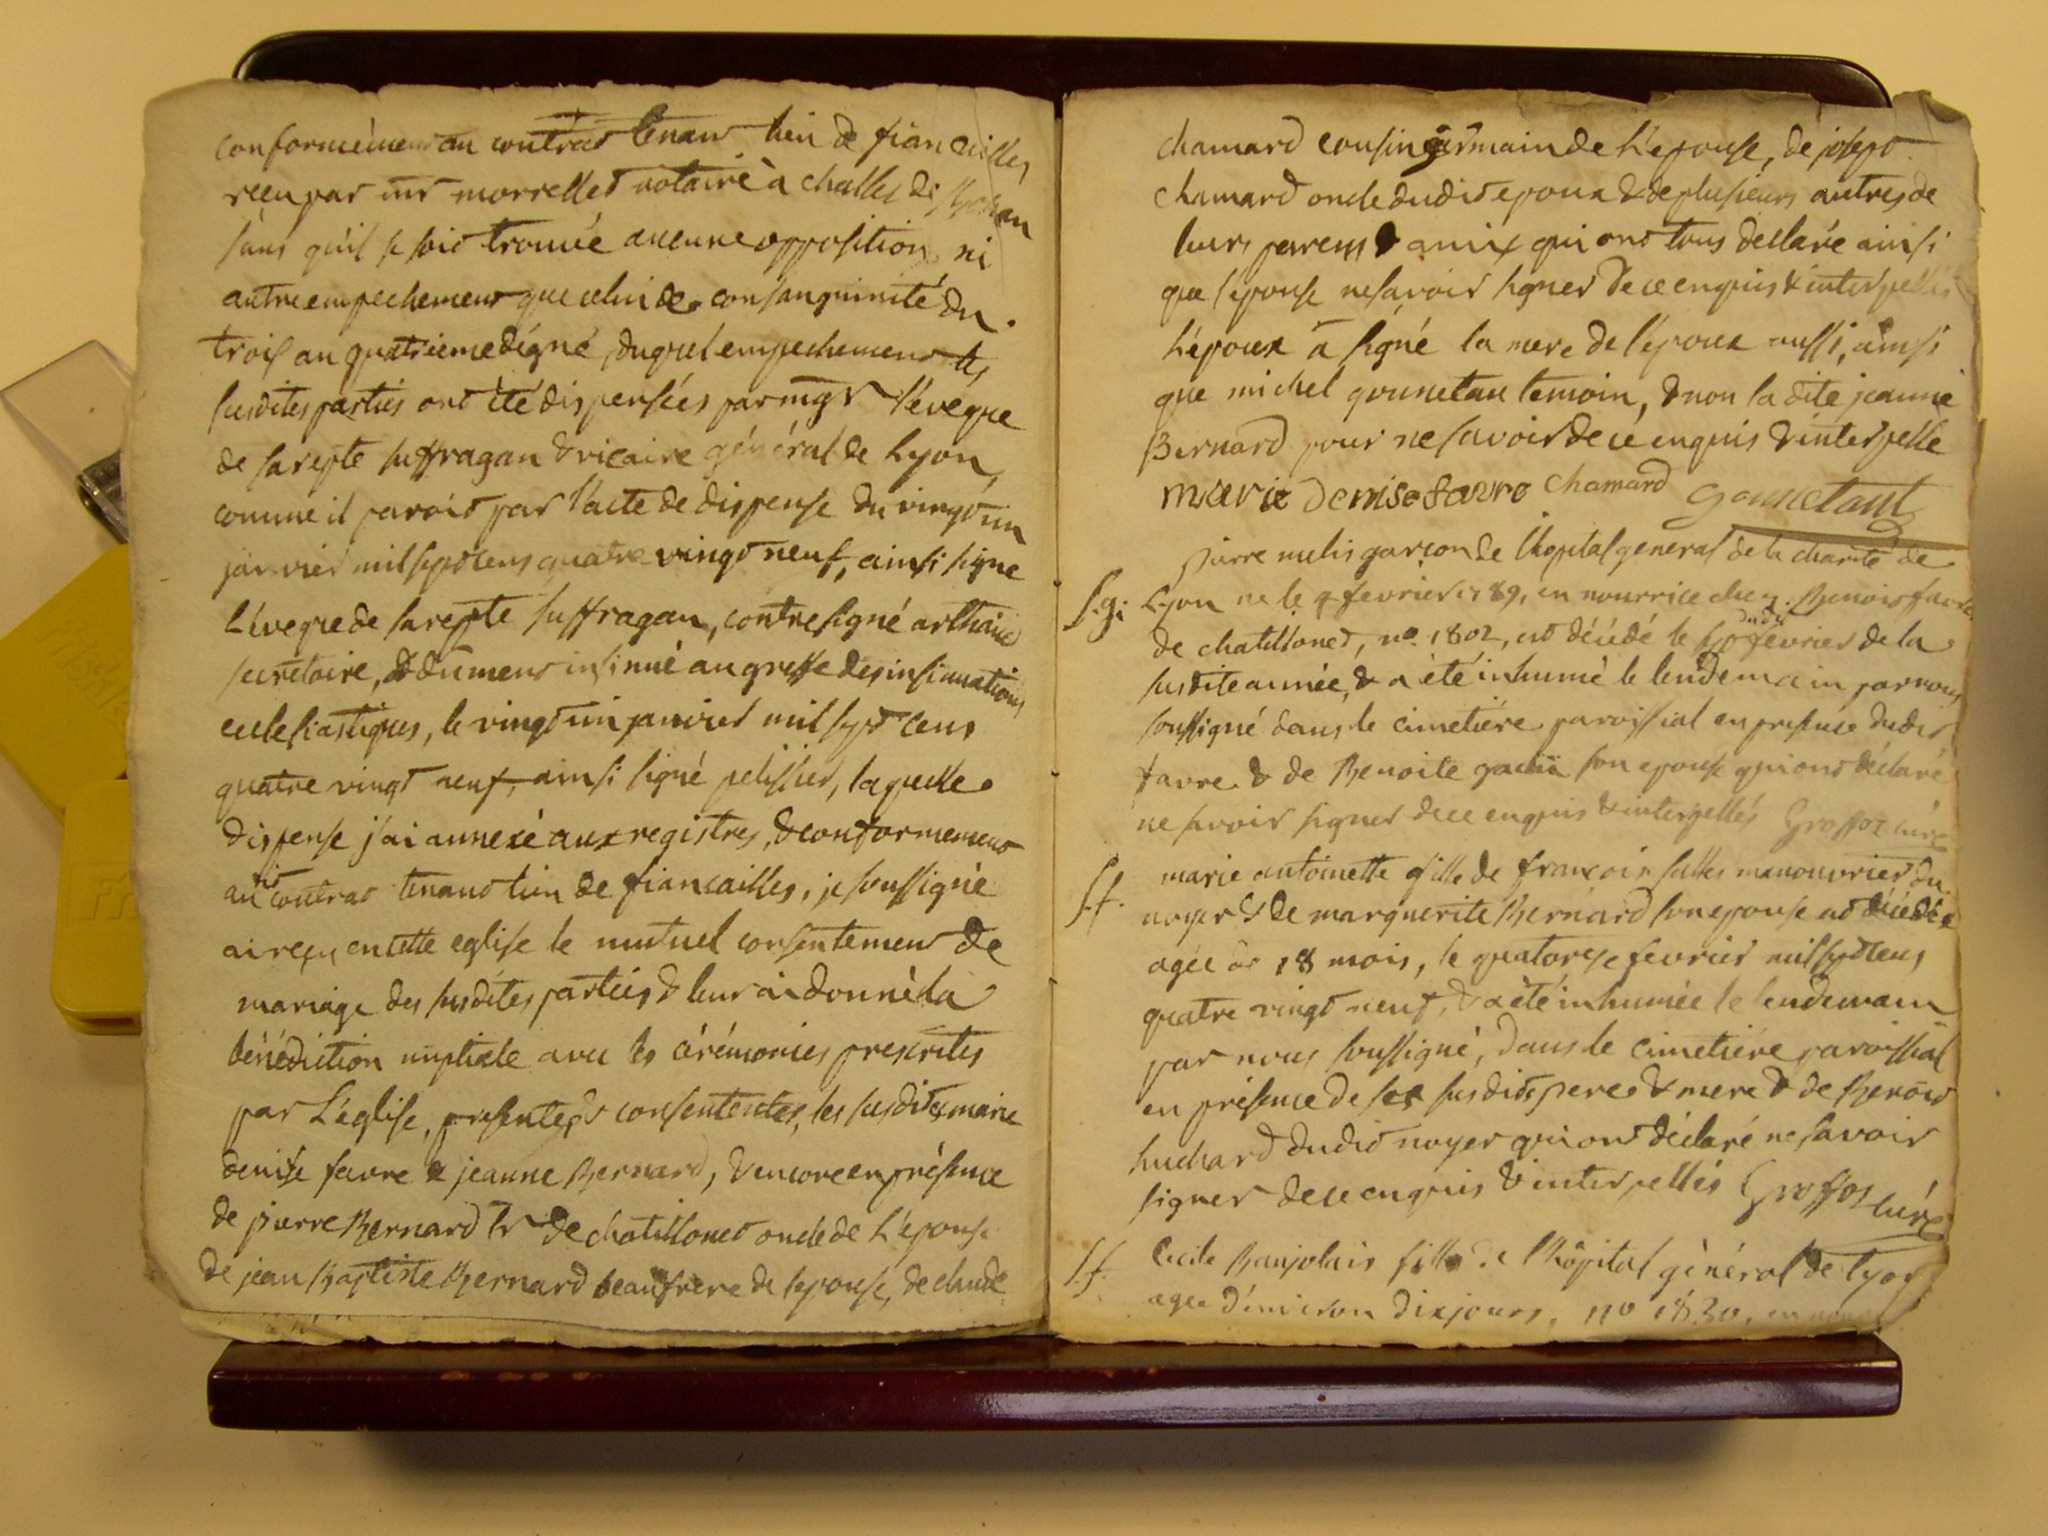 conformément au contrat tenant lieu de fiancailles
reçu par mr morrellet notaire à challes de Bohan
sans qu'il se soit trouvée aucune opposition, ni
autre empechement que celui de consanguinité du
trois au quatrieme dégré, duquel empechement les
susdites parties ont été dispensées par mgr L'éveque
de sarepte suffragan & vicaire général de Lyon,
comme il paroit par l'acte de dispense du vingt un
janvier mil sept cens quatre vingt neuf, ainsi signe
L'éveque de sarepte suffragan, contresigné
secretaire, & dument insinué au greffe des insinuations
ecclesiastiques, le vingt un janvier mil sept cens
quatre vingt neuf, ainsi signé pelissier, laquelle
dispense j'ai annexé aux registres, & conformement
audit contrat tenant lieu de fiancailles, je soussigné
ai reçu en cette eglise le mutuel consentement de
mariage des susdites parties & leur ai donné la
bénédiction nuptiale avec les cérémonies prescrites
par L'église, presentes & consententes, les susdites marie
denise favre & jeanne Bernard, & encore en présence
de pierre Bernard de chatillonet oncle de L'épouse
de jean Baptiste Bernard beaufrere de lepouse, de claude
chamard cousin germain de L'epouse, de josept
chamard oncle dudit epoux & de plusieurs autres de
leurs parens & amix qui ont tous déclaré ainsi
que l'epouse ne savoir signer de ce enquis & interpellés
L'époux a signé la mere de l'époux aussi, ainsi
que michel gounetau temoin, & non la dite jeanne
Bernard pour ne savoir de ce enquis & interpelle
marie denise favre chamard gounetant
pierre melis garçon de l'hopital general de la charité de
S.g. Lyon ne le 4 fevrier 1789, en nourrice chez Benoit favre
de chatillonet, no. 1802, est décédé le fevrier de la
susdite année, & a été inhumé le lendemain par nous
soussigné dans le cimetiére paroissial en presence dudit
favre & de Benoite son epouse qui ont déclaré
ne savoir signer de ce enquis & interpellés Groffoz curé
marie antoinette fille de françois manouvrier du
S.f. noyer & de marguerite Bernard son epouse est décédée
agée de 18 mois, le quatorze fevrier mil sept cens
quatre vingt neuf, & a été inhumée le lendemain
par nous soussigné, dans le cimetiére paroissial
en présence de ses susdits pere & mere & de Benoit
huchard dudit noyer qui ont déclaré ne savoir
signer de ce enquis & interpellés Groffoz curé
S.f. Cecile Baujolais fille de l'hôpital général de Lyon
agée d'environ dix jours, no 1830, en